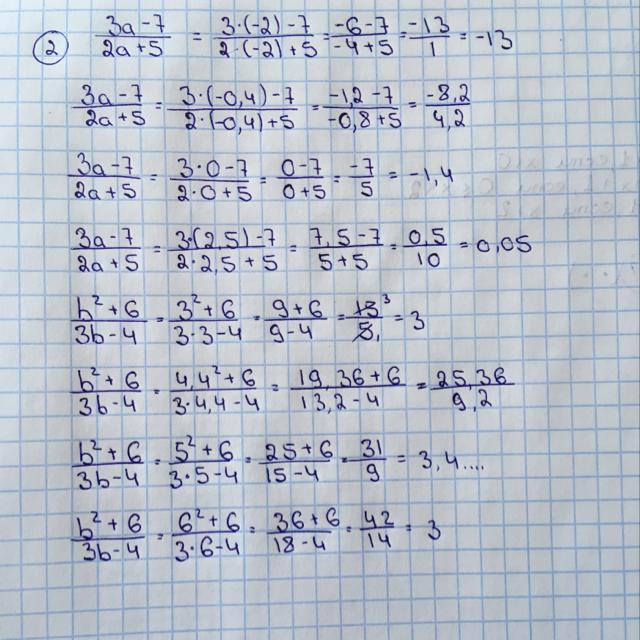 ② (3a-7)/(2a+5) = (3·(-2)-7)/(2·(-2)+5) = (-6-7)/(-4+5) = (-13)/1 = -13
(3a-7)/(2a+5) = (3·(-0,4)-7)/(2·(-0,4)+5) = (-1,2-7)/(-0,8+5) = (-8,2)/(4,2)
(3a-7)/(2a+5) = (3·0-7)/(2·0+5) = (0-7)/(0+5) = (-7)/5 = -1,4
(3a-7)/(2a+5) = (3·(2,5)-7)/(2·2,5+5) = (7,5-7)/(5+5) = (0,5)/10 = 0,05
(b²+6)/(3b-4) = (3²+6)/(3·3-4) = (9+6)/(9-4) = = 3
(b²+6)/(3b-4) = (4,4²+6)/(3·4,4-4) = (19,36+6)/(13,2-4) = (25,36)/(9,2)
(b²+6)/(3b-4) = (5²+6)/(3·5-4) = (25+6)/(15-4) = 31/9 = 3,4....
(b²+6)/(3b-4) = (6²+6)/(3·6-4) = (36+6)/(18-4) = 42/14 = 3